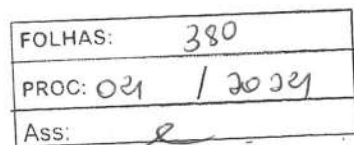 FOLHAS: 380
PROC: 021 / 2024
Ass: